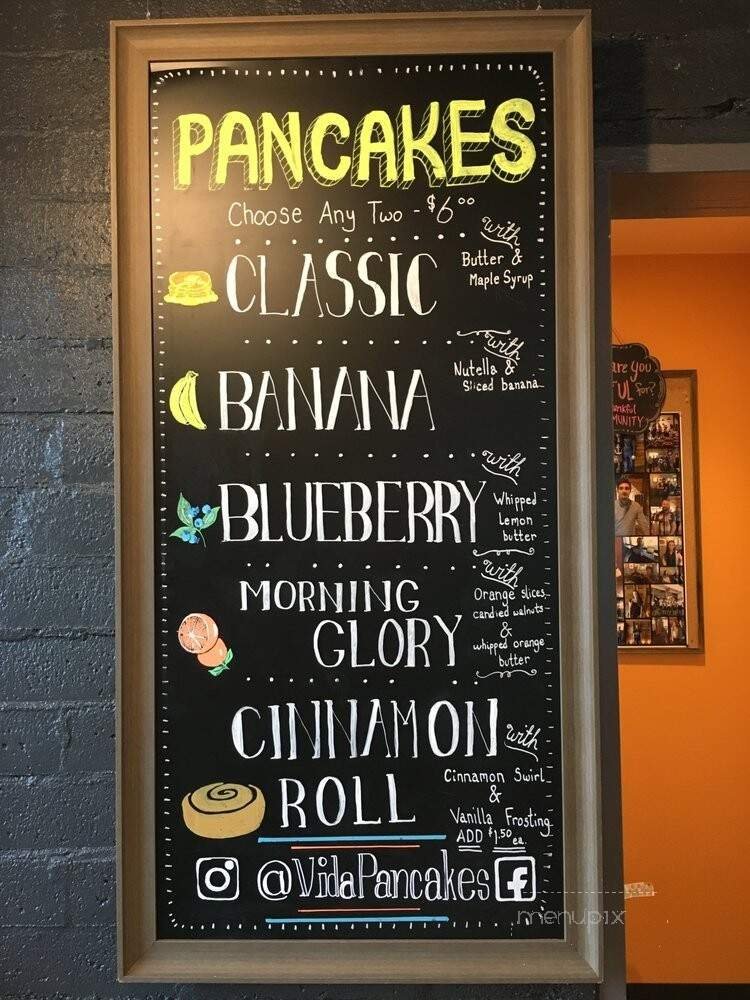 PANCAKES
Choose Any Two - $6.00
with
Butter &
Maple Syrup
CLASSIC
with
Nutella &
Sliced banana
BANANA
with
Whipped
Lemon
butter
BLUEBERRY
with
Orange slices
candied walnuts
&
whipped orange
butter
MORNING
GLORY
CINNAMON
ROLL
with
Cinnamon Swirl
&
Vanilla Frosting
ADD $1.50 ea.
@VidaPancakes f
are you
for?
menupix